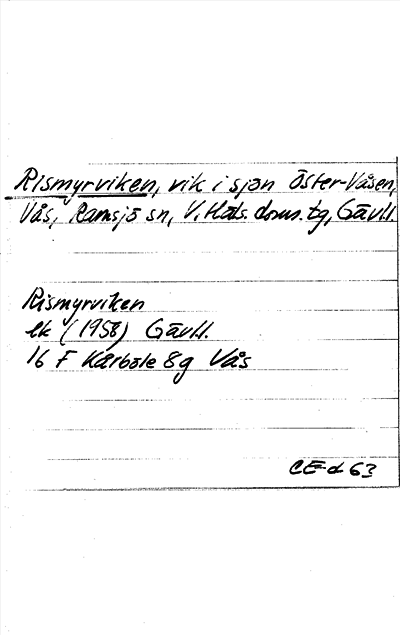 Rismyrviken, vik i sjön Öster-Våsen,
Vås, Ramsjö sn, V. Häls. doms. tg, Gävll.
Rismyrviken
ek (1958) Gävll.
16 F Kårböle 8g Vås
CE-d 63